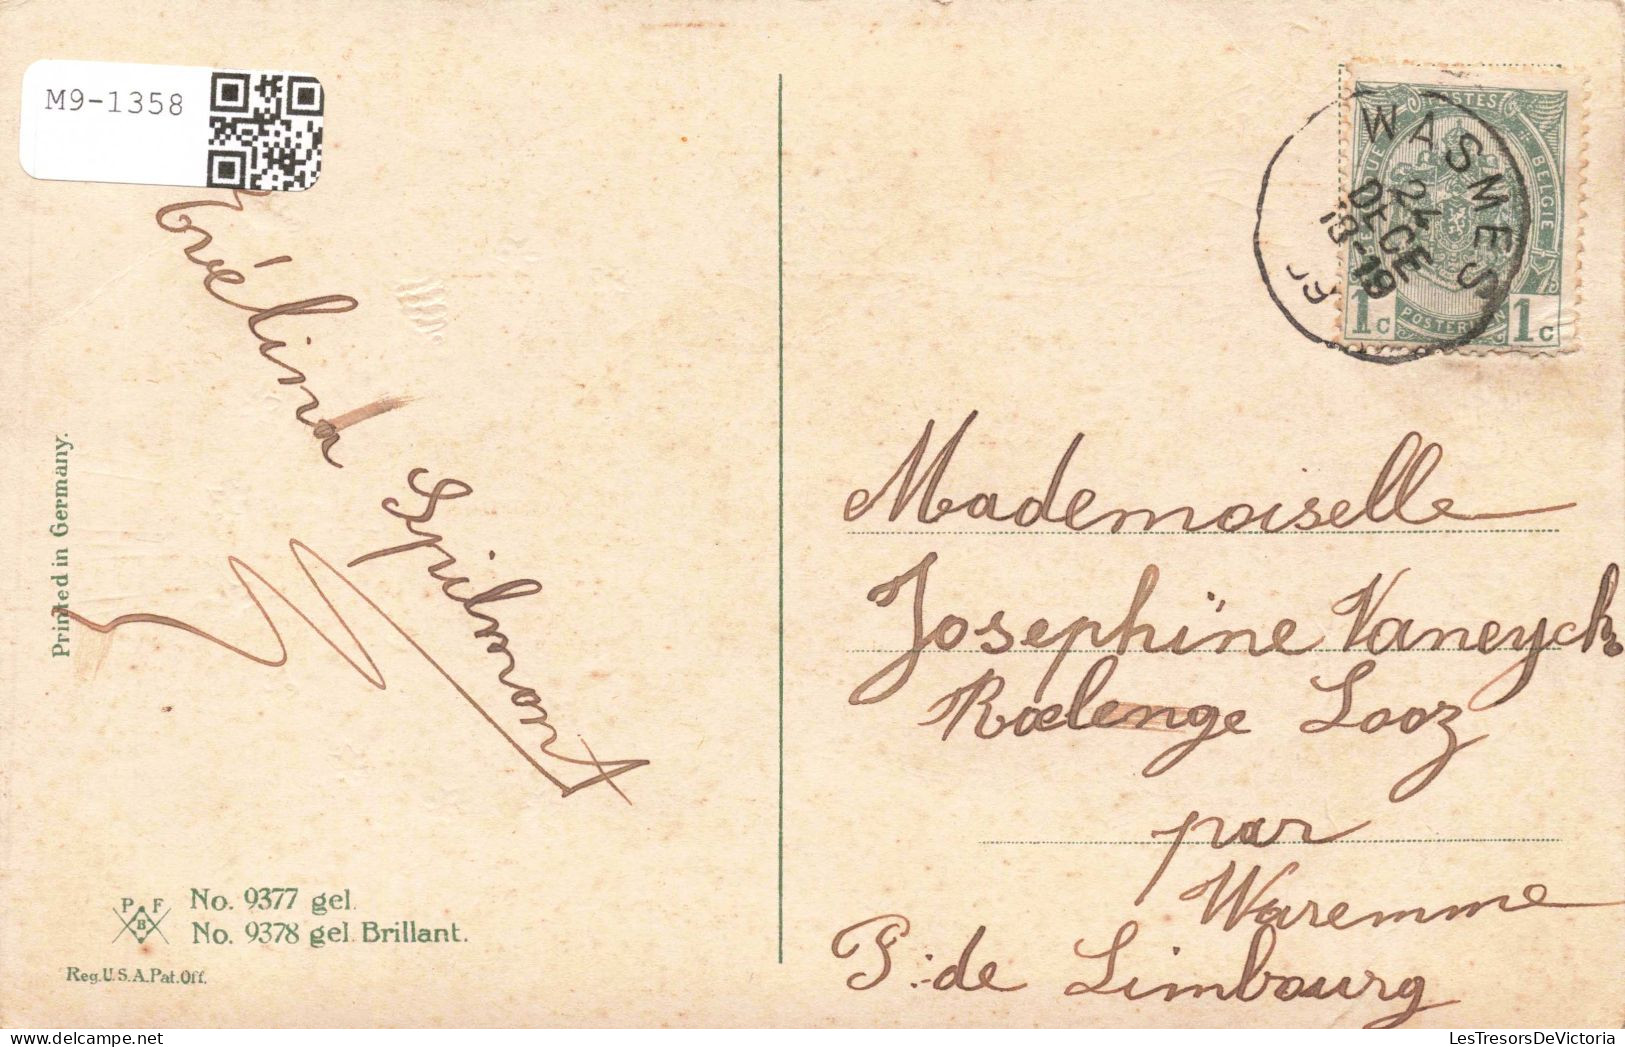 M9-1358
Évélina
Spilmont
Printed in Germany.
P F
B
No. 9377 gel.
No. 9378 gel. Brillant.
Reg. U.S.A. Pat. Off.
WASMES
24
DECE
18-19
09
POSTES
BELGIE
POSTERIJEN
1c 1c
Mademoiselle
Josephïne Vaneyck
Roelenge Looz
par
Waremme
P: de Limbourg
LesTresorsDeVictoria